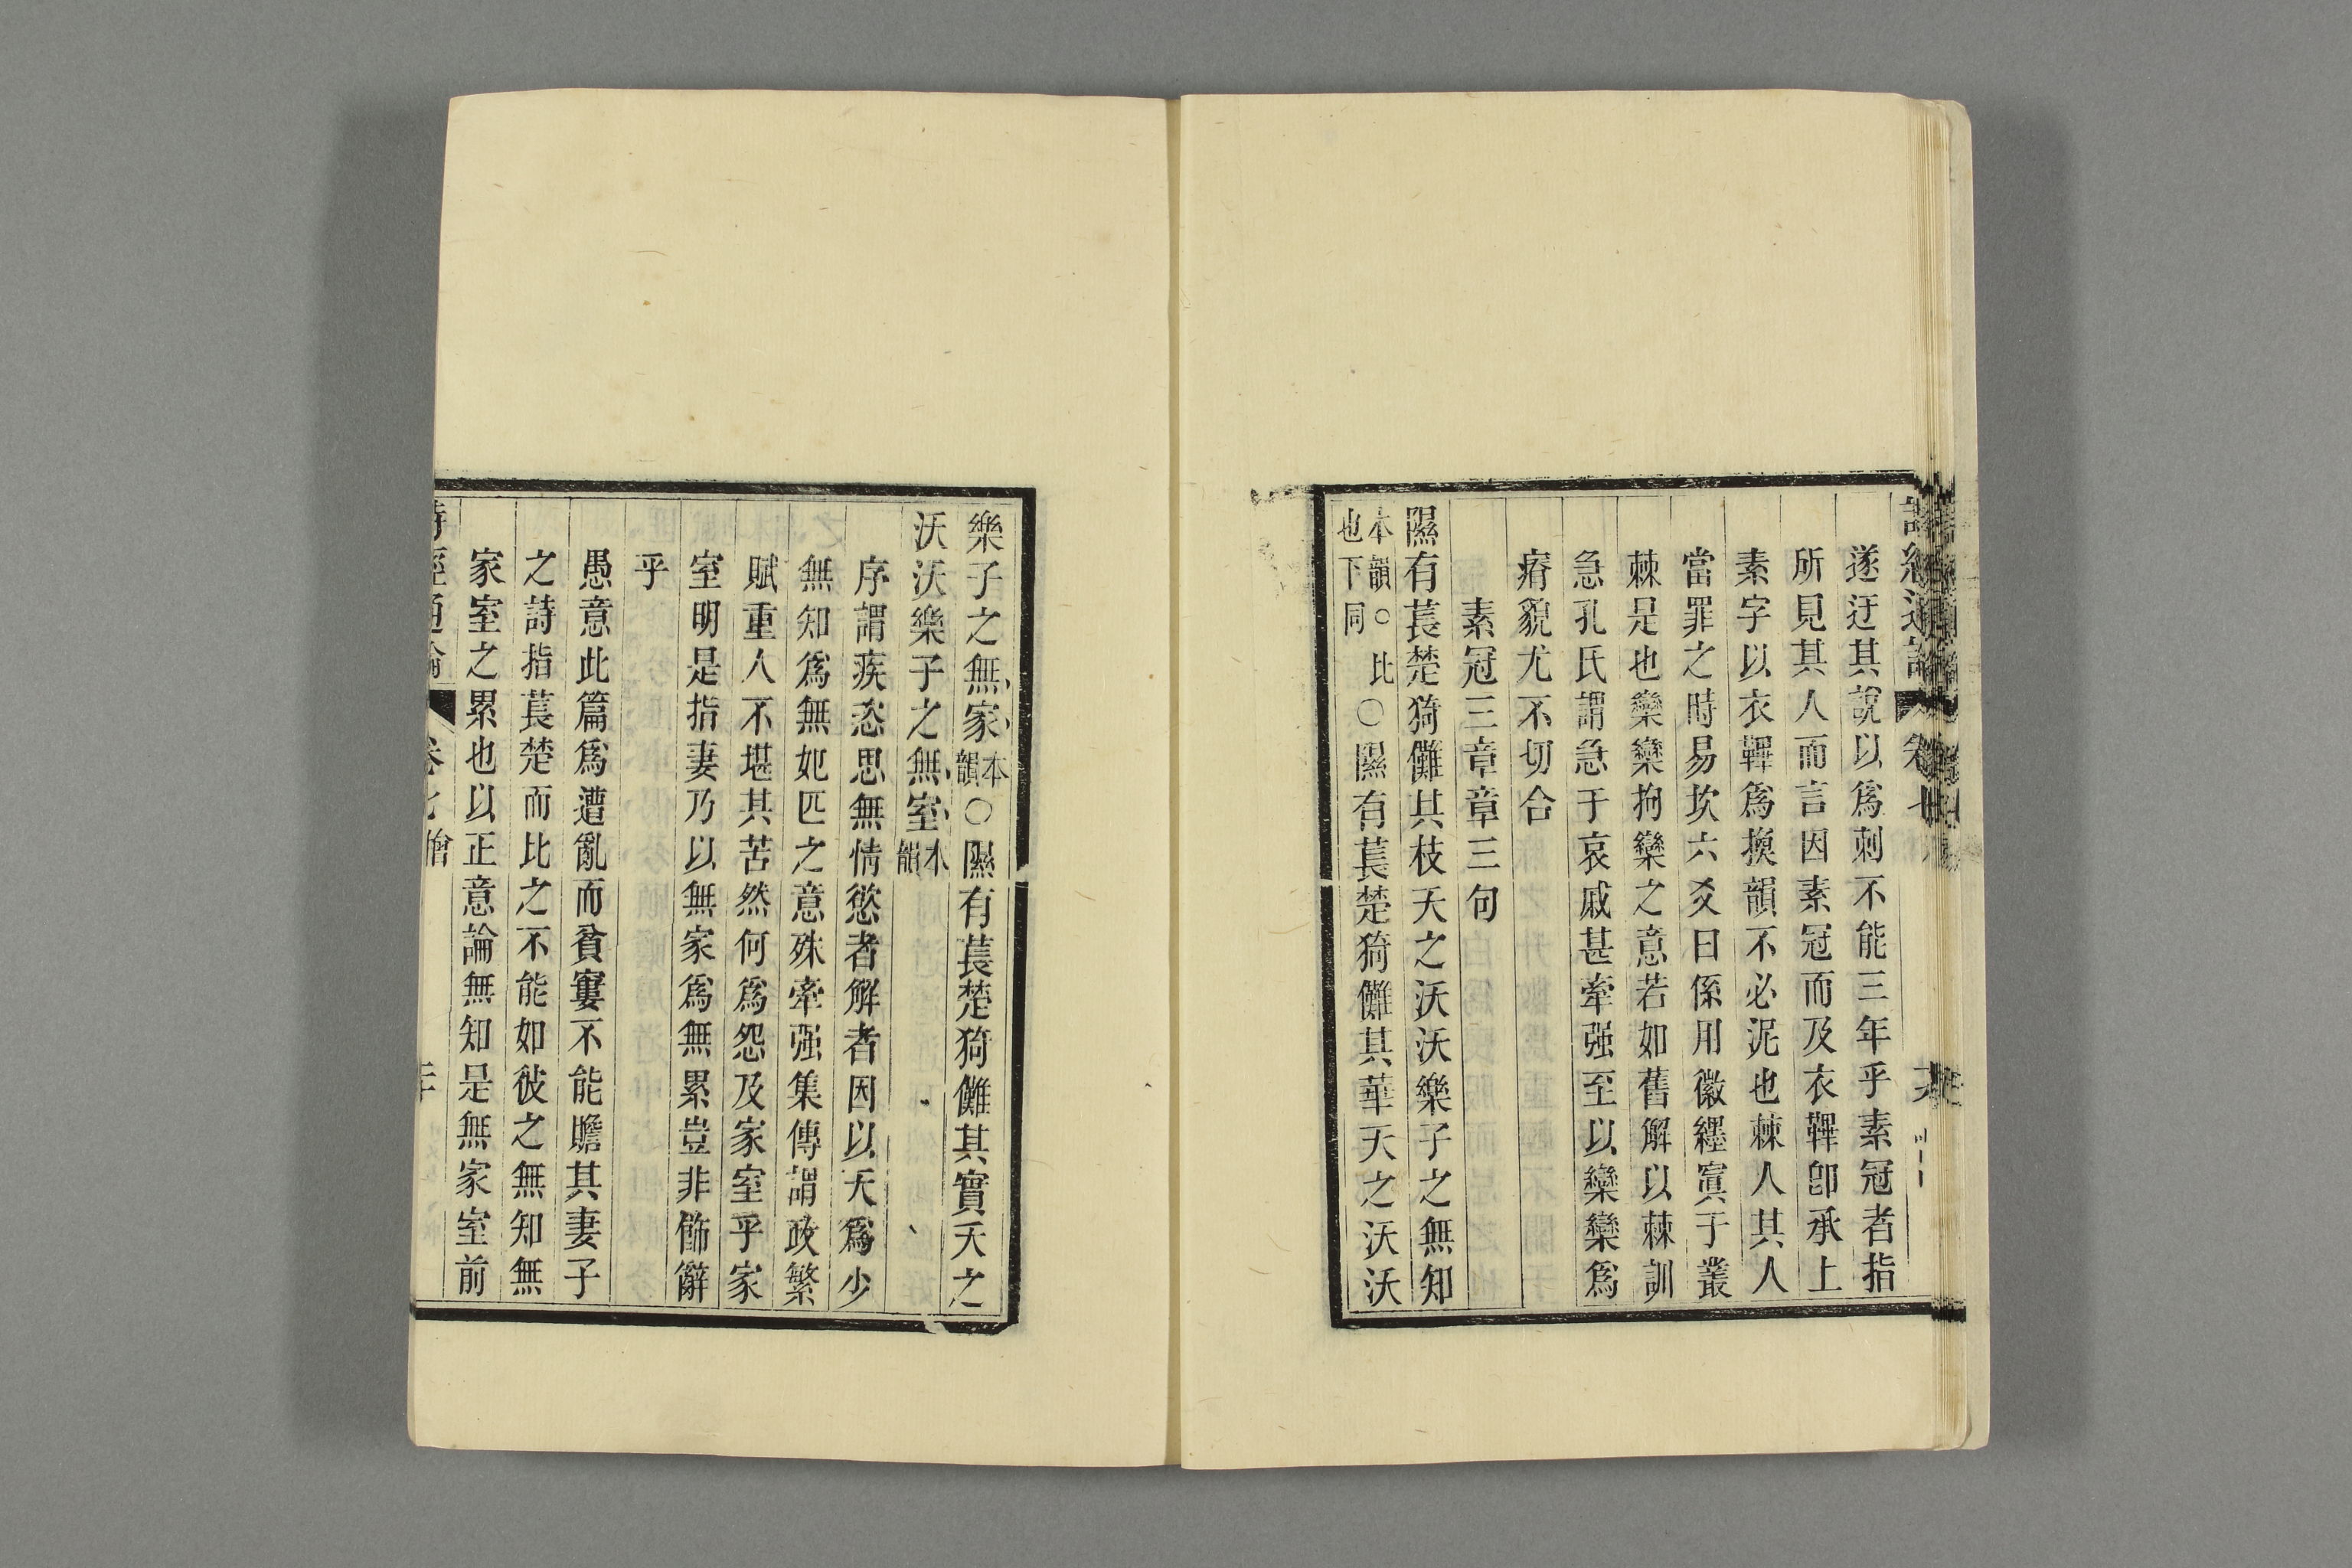 遂迂其說以爲刺不能三年乎素冠者指
所見其人而言因素冠而及衣韠卽承上
素字以衣韠爲換韻不必泥也棘人其人
當罪之時易坎六爻曰係用徽纆寘于叢
棘是也欒欒拘欒之意若如舊解以棘訓
急孔氏謂急于哀戚甚牽强至以欒欒爲
瘠貌尤不切合
素冠三章章三句
隰有萇楚猗儺其枝夭之沃沃樂子之無知
本韻○比也下同○隰有萇楚猗儺其華夭之沃沃
樂子之無家本韻○隰有萇楚猗儺其實夭之
沃沃樂子之無室本韻
序謂疾恣思無情慾者解者因以夭爲少
無知爲無妃匹之意殊牽强集傳謂政繁
賦重人不堪其苦然何爲怨及家室乎家
室明是指妻乃以無家爲無累豈非飾辭
乎
愚意此篇爲遭亂而貧窶不能贍其妻子
之詩指萇楚而比之不能如彼之無知無
家室之累也以正意論無知是無家室前